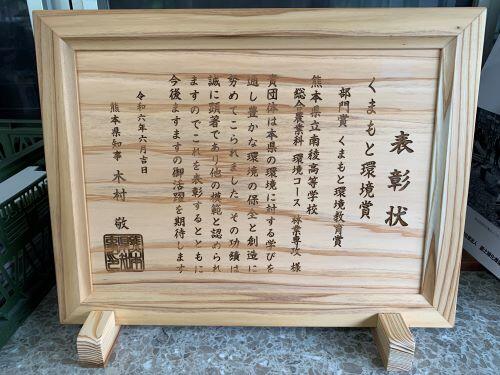 表彰状
くまもと環境賞
部門賞 くまもと環境教育賞
熊本県立南稜高等学校
総合農業科 環境コース 林業専攻 様
貴団体は本県の環境に対する学びを
通し豊かな環境の保全と創造に
努めてこられました その功績は
誠に顕著であり他の模範と認められ
ますのでこれを表彰するとともに
今後ますますの御活躍を期待します
令和六年六月吉日
熊本県知事 木村 敬